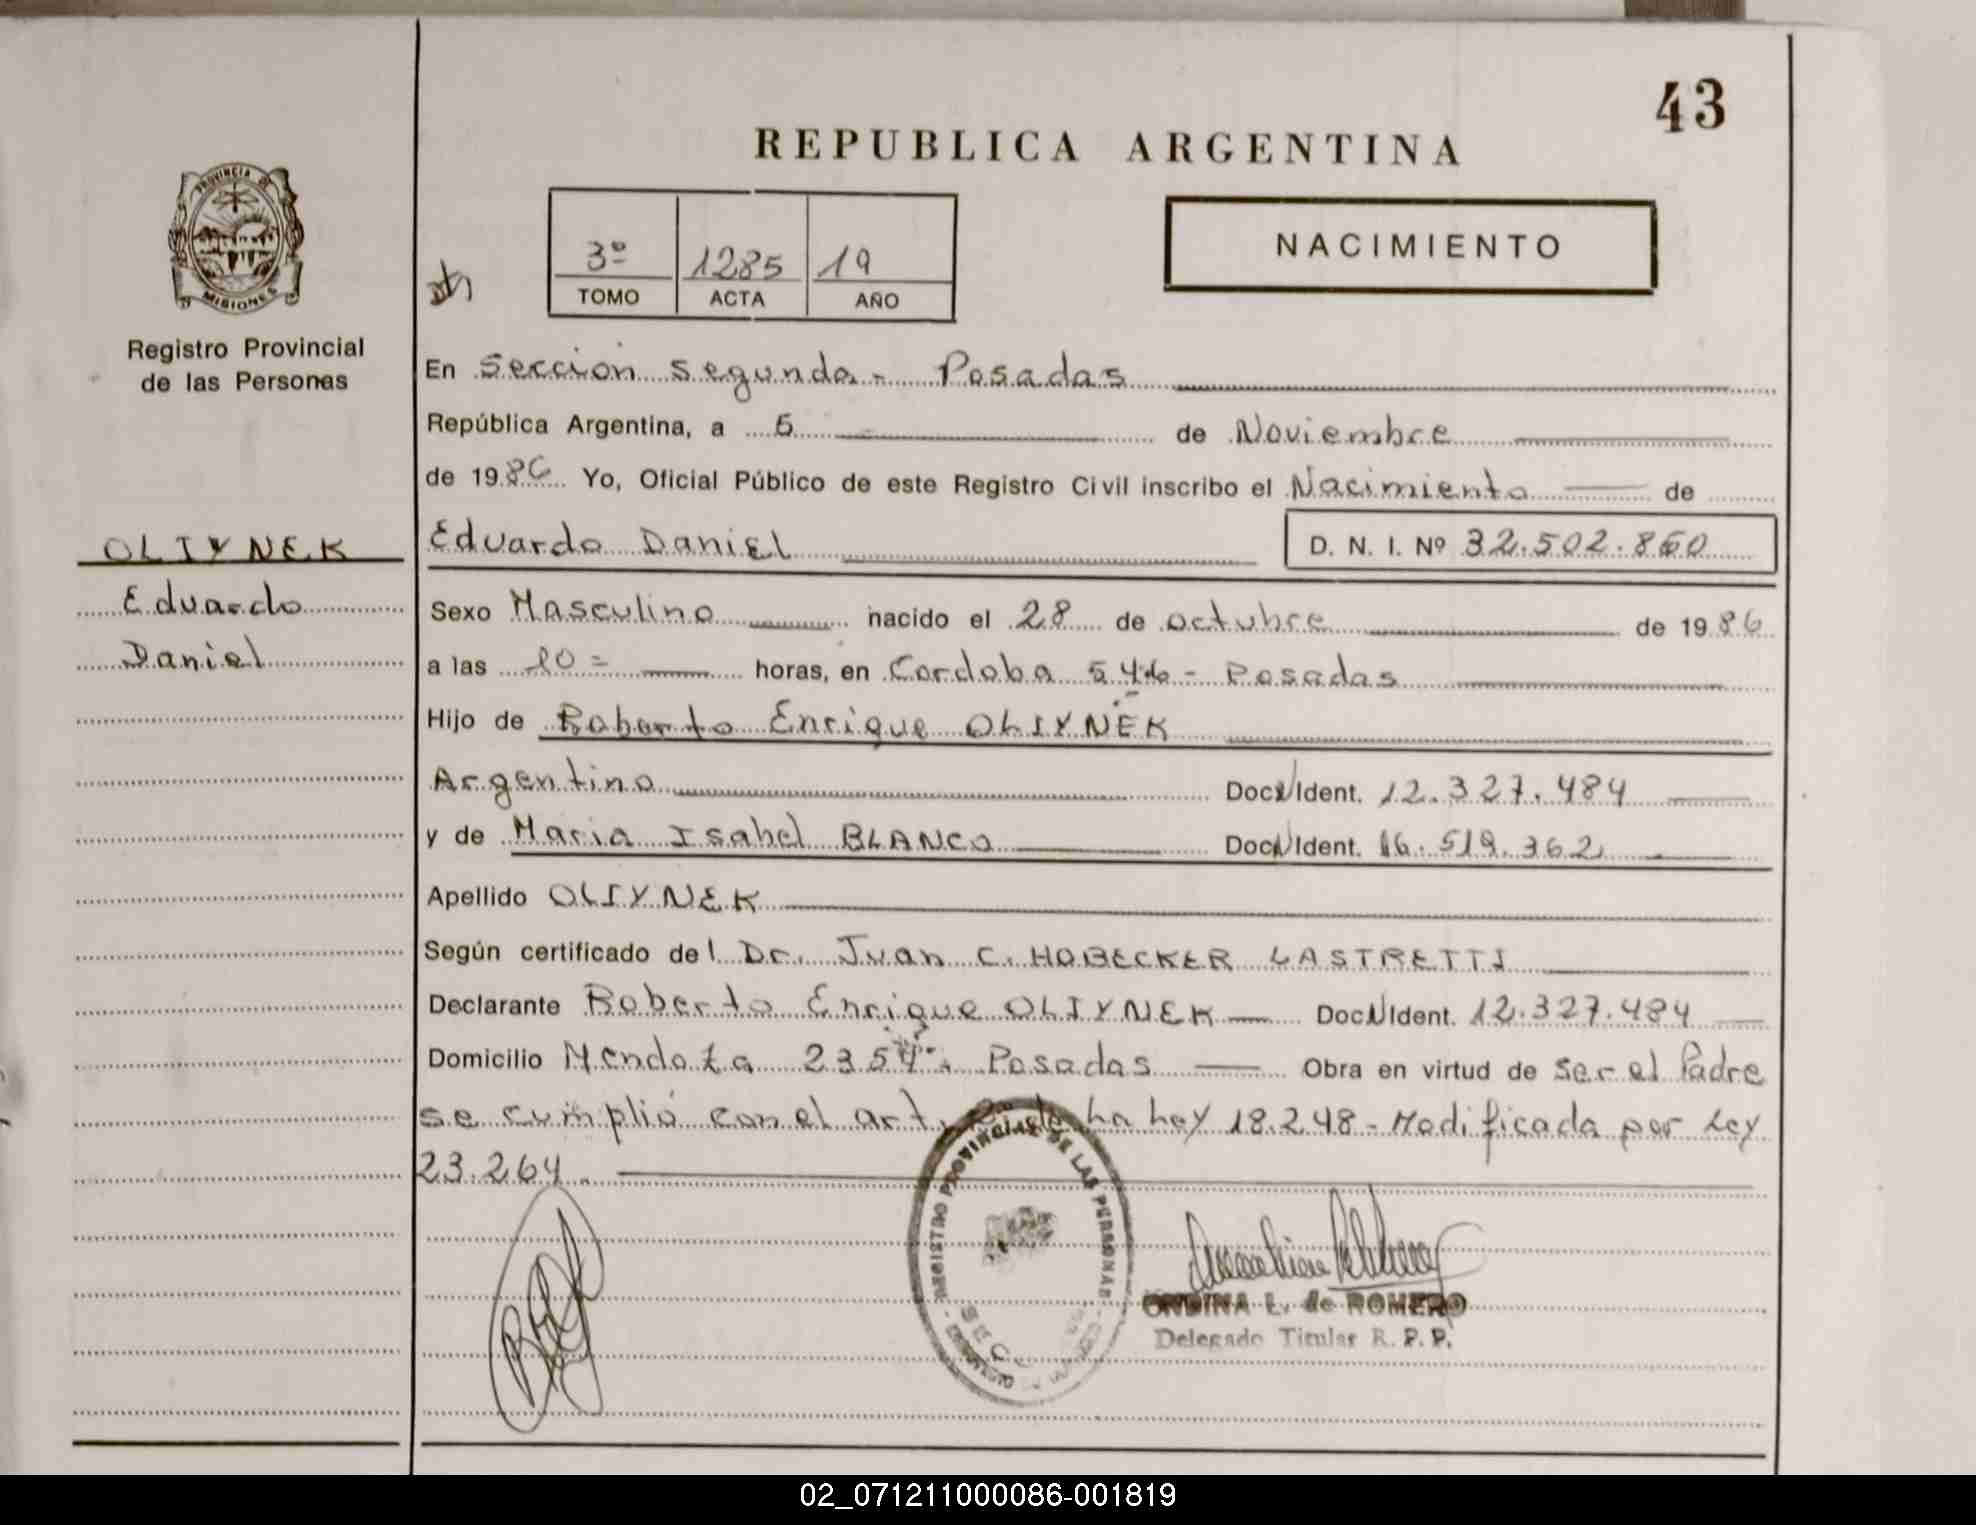 43
REPUBLICA ARGENTINA
PROVINCIA DE
MISIONES
3º 1285 19
TOMO ACTA AÑO
NACIMIENTO
Registro Provincial
de las Personas
En Seccion Segunda - Posadas
República Argentina, a 5 de Noviembre
de 1986 Yo, Oficial Público de este Registro Civil inscribo el Nacimiento de
OLIYNEK
Eduardo
Daniel
Eduardo Daniel D. N. I. Nº 32.502.860
Sexo Masculino nacido el 28 de octubre de 1986
a las horas, en Cordoba - Posadas
Hijo de Roberto Enrique OLIYNEK
Argentino Doc. Ident. 12.327.484
y de Maria Isabel BLANCO Doc. Ident. 16.519.362
Apellido OLIYNEK
Según certificado del Dr. Juan C. HOBECKER LASTRETTI
Declarante Roberto Enrique OLIYNEK Doc. Ident. 12.327.484
Domicilio Mendoza 2354 - Posadas Obra en virtud de ser el Padre
se cumplió con el art. de la Ley 18.248 - Modificada por Ley
23.264.
REGISTRO PROVINCIAL DE LAS PERSONAS
ONDINA L. de ROMERO
Delegado Titular R. P. P.
02_071211000086-001819